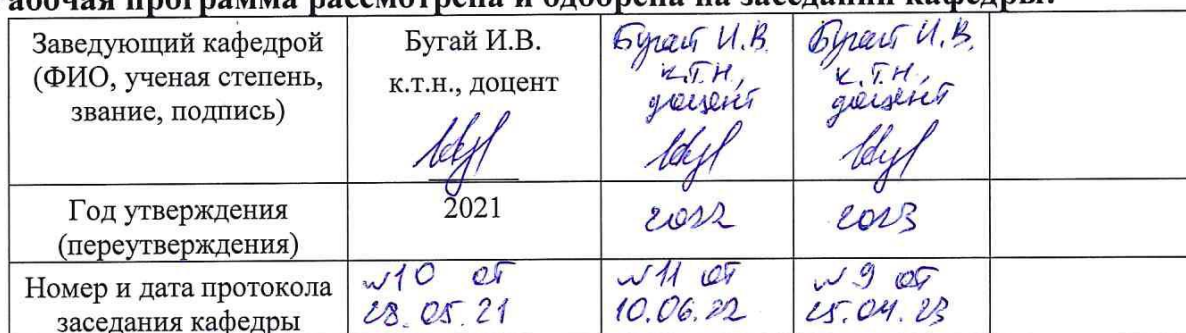 абочая программа рассмотрена и одобрена на заседании кафедры:
Заведующий кафедрой
(ФИО, ученая степень,
звание, подпись)
Бугай И.В.
к.т.н., доцент
Бугай И.В.
к.т.н,
доцент
Бугай И.В.
к.т.н,
доцент
Год утверждения
(переутверждения)
2021
2022
2023
Номер и дата протокола
заседания кафедры
№10 от
28.05.21
№11 от
10.06.22
№9 от
25.04.23